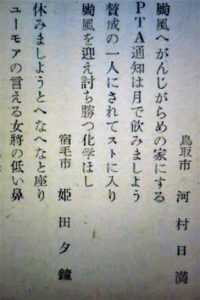 鳥取市 河村日満
颱風へがんじがらめの家にする
PTA通知は月で飲みましよう
賛成の一人にされてストに入り
颱風を迎え討ち勝つ化学ほし
宿毛市 姫田夕鐘
休みましようとへなへなと座り
ユーモアの言える女將の低い鼻